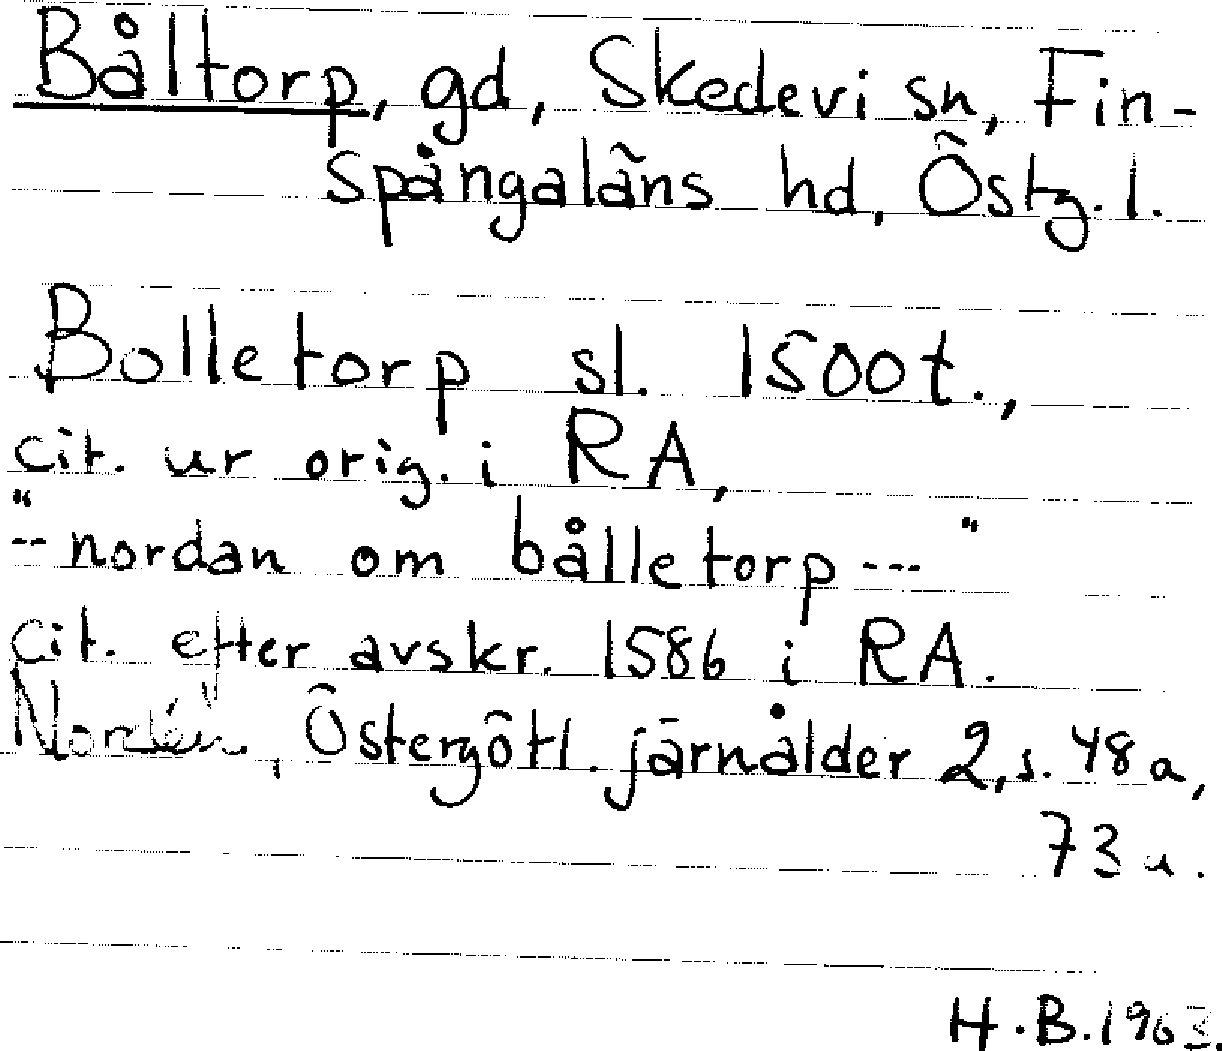 Båltorp, gd, Skedevi sn, Fin-
spångalãns hd, Õstg. l.
Bolletorp sl. 1500t.,
cit. ur orig. i RA,
"-- nordan om bålletorp --- "
cit. efter avskr. 1586 i RA.
Nordén, Õstergõtl. järnålder 2, s. 48 a,
73 u.
H.B. 1963.